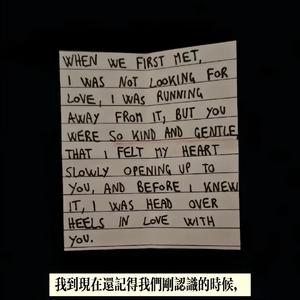 WHEN WE FIRST MET,
I WAS NOT LOOKING FOR
LOVE, I WAS RUNNING
AWAY FROM IT, BUT YOU
WERE SO KIND AND GENTLE,
THAT I FELT MY HEART
SLOWLY OPENING UP TO
YOU, AND BEFORE I KNEW
IT, I WAS HEAD OVER
HEELS IN LOVE WITH
YOU.
我到現在還記得我們剛認識的時候,